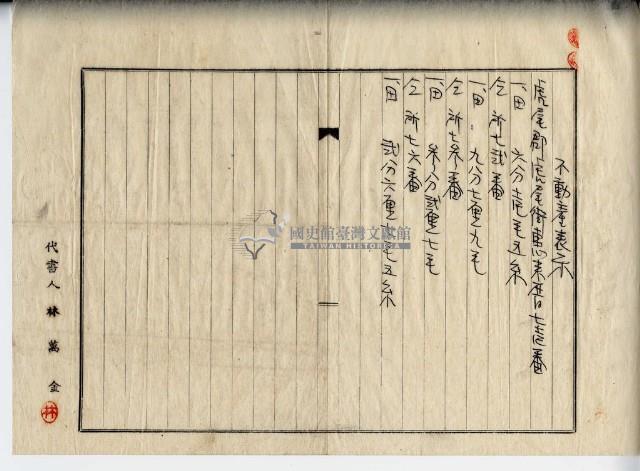 不動產表示
虎尾郡虎尾街惠來厝七壱番
一、田 六分壱毛五糸
仝所七弍番
一、田 九分七厘九毛
仝所七参番
一、田 参分弍厘七毛
仝所七六番
一、田 弍分六厘毛五糸
國史館臺灣文獻館
TAIWAN HISTORICA
代書人 林萬金
林